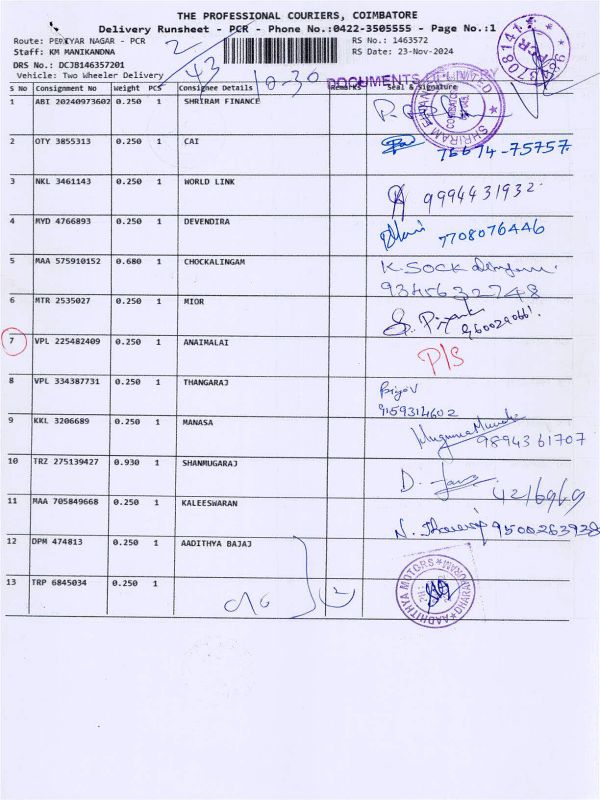 THE PROFESSIONAL COURIERS, COIMBATORE
Delivery Runsheet - PCR - Phone No.:0422-3505555 - Page No.:1
Route: PERIYAR NAGAR - PCR
RS No.: 1463572
Staff: KM MANIKANDNA
RS Date: 23-Nov-2024
DRS No.: DCJB146357201
Vehicle: Two Wheeler Delivery
2
43
10-30
DOCUMENTS
S No Consignment No Weight PCS Consignee Details Remarks Seal & Signature
1 ABI 20240973602 0.250 1 SHRIRAM FINANCE
2 OTY 3855313 0.250 1 CAI 75757
3 NKL 3461143 0.250 1 WORLD LINK 9994431932
4 MYD 4766893 0.250 1 DEVENDIRA 7708076446
5 MAA 575910152 0.680 1 CHOCKALINGAM
9345632748
6 MTR 2535027 0.250 1 MIOR 9600290661.
7 VPL 225482409 0.250 1 ANAIMALAI P/S
8 VPL 334387731 0.250 1 THANGARAJ
9159314602
9 KKL 3206689 0.250 1 MANASA 9894361707
10 TRZ 275139427 0.930 1 SHANMUGARAJ D.
4216969
11 MAA 705849668 0.250 1 KALEESWARAN 9500263928
12 DPM 474813 0.250 1 AADITHYA BAJAJ
13 TRP 6845034 0.250 1
AADHITHYA MOTORS